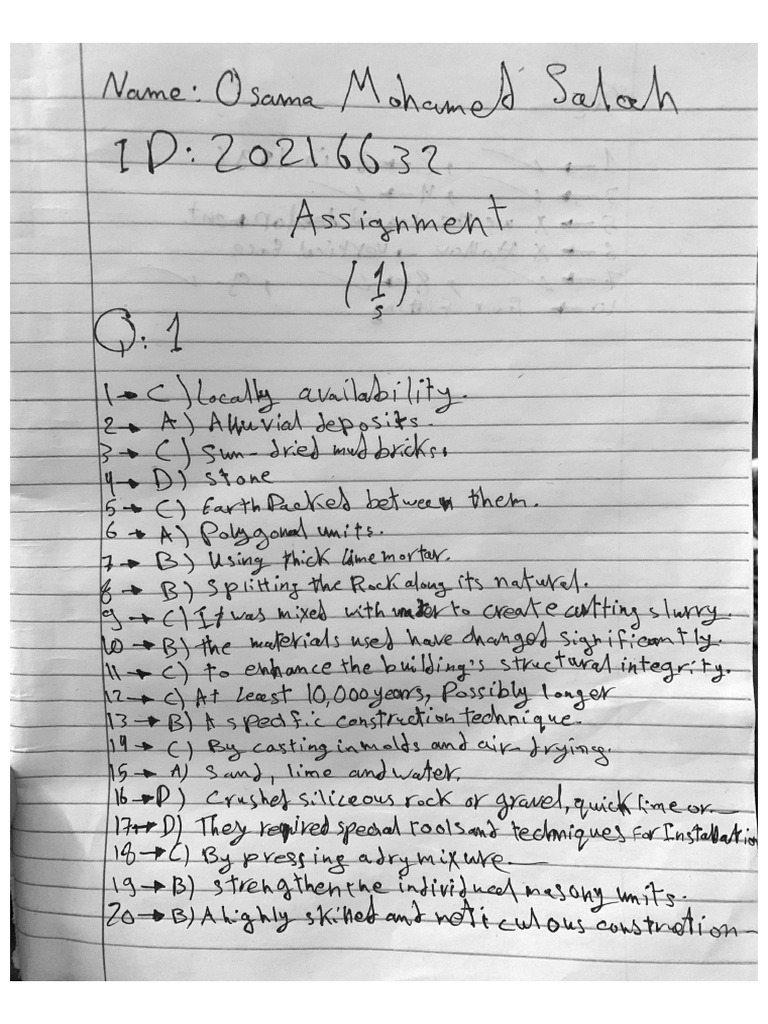 Name: Osama Mohamed Salah
ID: 20216632
Assignment
(1)
s
Q: 1
1→ C) Locally availability.
2→ A) Alluvial deposits.
3→ C) Sun-dried mud bricks.
4→ D) Stone
5→ C) Earth Packed between them.
6→ A) Polygonal units.
7→ B) Using thick lime mortar.
8→ B) Splitting the Rock along its natural.
9→ C) It was mixed with water to create cutting slurry.
10→ B) the materials used have changed significantly.
11→ C) to enhance the building's structural integrity.
12→ C) At Least 10,000 years, Possibly longer
13→ B) A specific construction technique.
14→ C) By casting in molds and air-drying.
15→ A) Sand, lime and water.
16→ D) Crushed siliceous rock or gravel, quick lime or
17→ D) They required special tools and techniques for Installation
18→ C) By pressing a dry mixure.
19→ B) strengthen the individual masony units.
20→ B) A highly skilled and meticulous constrution